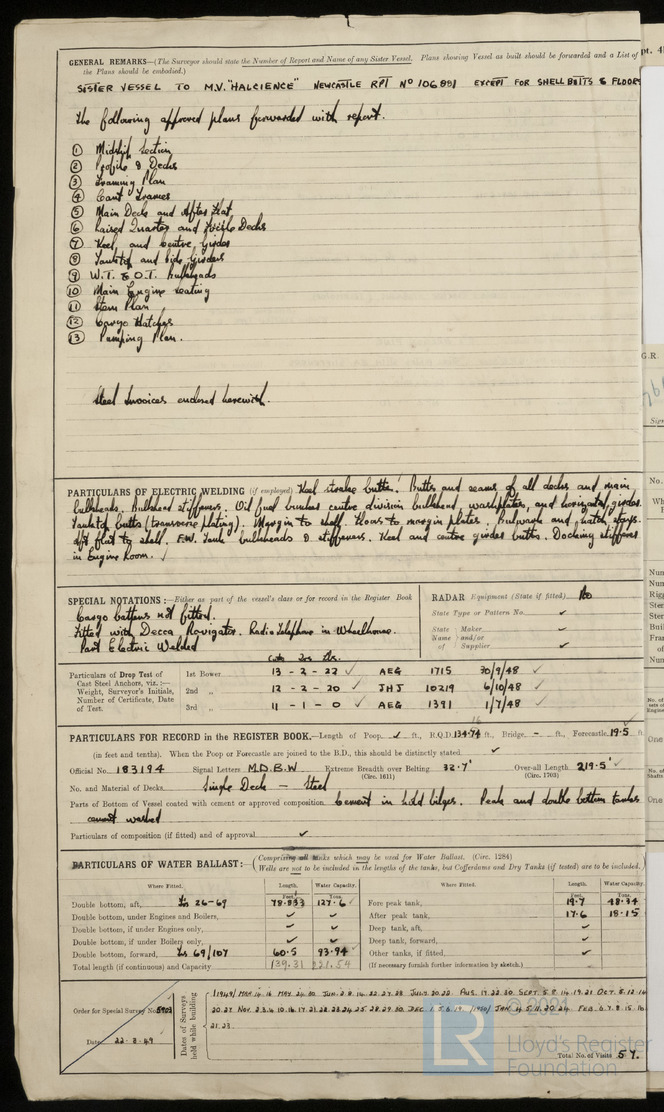 GENERAL REMARKS—(The Surveyor should state the Number of Report and Name of any Sister Vessel. Plans showing Vessel as built should be forwarded and a List of
the Plans should be embodied.)
SISTER VESSEL TO M.V. "HALCIENCE" NEWCASTLE RPT No 106881 EXCEPT FOR SHELL BUTTS & FLOORS
The following approved plans forwarded with report.
① Midship Section
② Profile & Decks
③ Framing Plan
④ Cant Frames
⑤ Main Deck and After Flat
⑥ Raised Quarter and Decks
⑦ Keel, and Centre Girder
⑧ Tanktop and Side Girders
⑨ W.T. & O.T. Bulkheads
⑩ Main Engine Seating
⑪ Stem Plan
⑫ Cargo Hatches
⑬ Pumping Plan.
Steel Invoices enclosed herewith.
PARTICULARS OF ELECTRIC WELDING (if employed) Keel strake butts. Butts and seams of all decks and main
bulkheads. Bulkhead stiffeners. Oil fuel bunker centre division bulkhead, washplates, and horizontal girder.
Tanktop butts (transverse plating). Margin to shell. Floors to margin plates. Bulwark and hatch stays.
Aft flat to shell. F.W. Tank bulkheads & stiffeners. Keel and centre girder butts. Docking stiffeners
in Engine Room. ✓
SPECIAL NOTATIONS:—Either as part of the vessel's class or for record in the Register Book
Cargo battens not fitted.
Fitted with Decca Navigator. Radio Telephone in Wheelhouse.
Part Electric Welded
RADAR Equipment (State if fitted) No
State Type or Pattern No. ✓
State Name of Maker and/or Supplier ✓
Cwts Qrs Lbs.
Particulars of Drop Test of Cast Steel Anchors, viz.:— Weight, Surveyor's Initials, Number of Certificate, Date of Test.
1st Bower 13 - 2 - 22 ✓ AEG 1715 30/9/48 ✓
2nd „ 12 - 2 - 20 ✓ JHJ 10219 6/10/48 ✓
3rd „ 11 - 1 - 0 ✓ AEG 1391 1/7/48 ✓
PARTICULARS FOR RECORD in the REGISTER BOOK.—Length of Poop ✓ ft., R.Q.D. 134.74 ft., Bridge - ft., Forecastle 19.5 ft.
(in feet and tenths). When the Poop or Forecastle are joined to the B.D., this should be distinctly stated ✓
Official No. 183194 Signal Letters M.D.B.W Extreme Breadth over Belting 32.7' (Circ. 1611) Over-all Length 219.5' ✓ (Circ. 1703)
No. and Material of Decks Single Deck — Steel
Parts of Bottom of Vessel coated with cement or approved composition Cement in hold bilges. Peaks and double bottom tanks
cement washed
Particulars of composition (if fitted) and of approval ✓
PARTICULARS OF WATER BALLAST:—(Comprising all tanks which may be used for Water Ballast. (Circ. 1284)
Wells are not to be included in the lengths of the tanks, but Cofferdams and Dry Tanks (if tested) are to be included.)
Where Fitted. Length. Feet. Water Capacity. Tons. Where Fitted. Length. Feet. Water Capacity. Tons.
Double bottom, aft, Frs 26-69 78.833 127.6 ✓ Fore peak tank, 19.7 48.34
Double bottom, under Engines and Boilers, ✓ ✓ After peak tank, 17.6 18.15
Double bottom, if under Engines only, ✓ ✓ Deep tank, aft, ✓
Double bottom, if under Boilers only, ✓ ✓ Deep tank, forward, ✓
Double bottom, forward, Frs 69/107 60.5 93.94 Other tanks, if fitted, ✓
Total length (if continuous) and Capacity 139.31 221.54 (If necessary furnish further information by sketch.)
Order for Special Survey No. 5903
Date 22.2.49
Dates of Surveys held while building
(1949) MAR 14.16 MAY 24.30 JUN 2.8.14.22.27.28 JULY 20.22. AUG. 17.22.30 SEPT. 5.8.14.19.21 OCT. 5.12.14
20.27 NOV. 2.3.4.10.16.17.21.22.23.24.25.28.29.30 DEC. 1.5.6.19. (1950) JAN 4.5.11.20.24 FEB. 6.7.8.15.16
21.23.
Total No. of Visits 57.
© 2021
LR
Lloyd's Register
Foundation